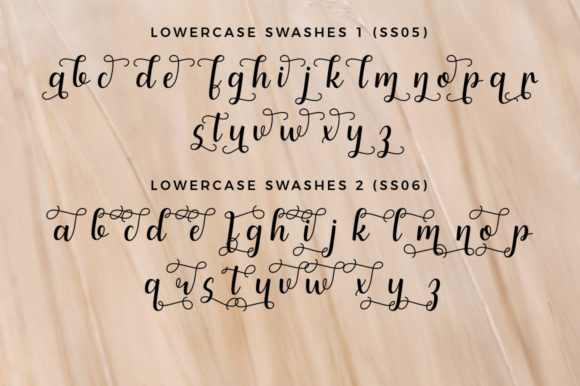 LOWERCASE SWASHES 1 (SS05)
a b c d e f g h i j k l m n o p q r
s t u v w x y z
LOWERCASE SWASHES 2 (SS06)
a b c d e f g h i j k l m n o p
q r s t u v w x y z